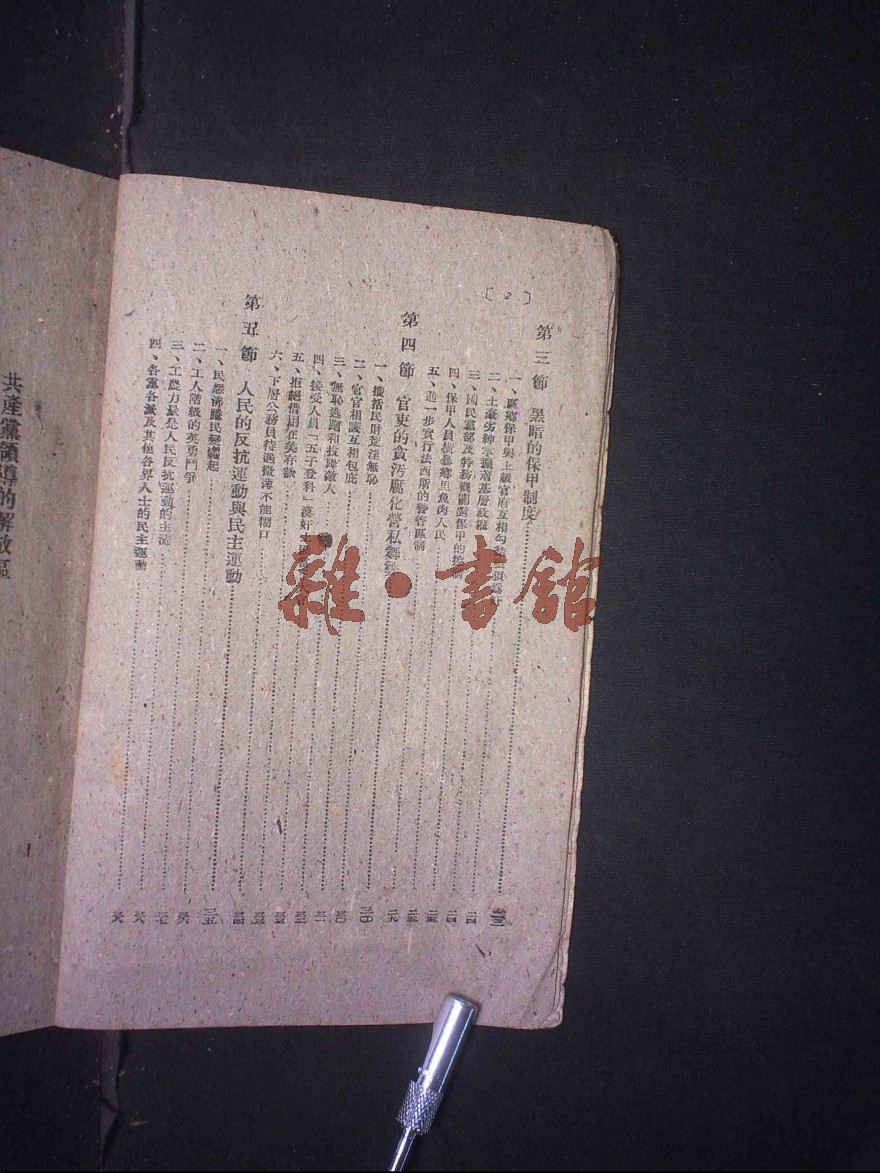 〔2〕
第三節 黑暗的保甲制度
一、區鄉保甲與上級官府互相勾
二、土豪劣紳掌握着基層政權
三、國民黨部及特務機關對保甲的
四、保甲人員橫暴鄉里魚肉人民
五、進一步實行法西斯的警管區制
第四節 官吏的貪污腐化營私舞
一、搜括民財荒淫無恥
二、官官相護互相包庇
三、無恥逃跑和投降敵人
四、接受人員「五子登科」漢奸
五、拒絕借用在美存款
六、下層公務員待遇微薄不能糊口
第五節 人民的反抗運動與民主運動
一、民怨沸騰民變蠭起
二、工人階級的英勇鬥爭
三、工農力量是人民反抗運動的主流
四、各黨各派及其他各界人士的民主運動
共產黨領導的解放區
雜·書館